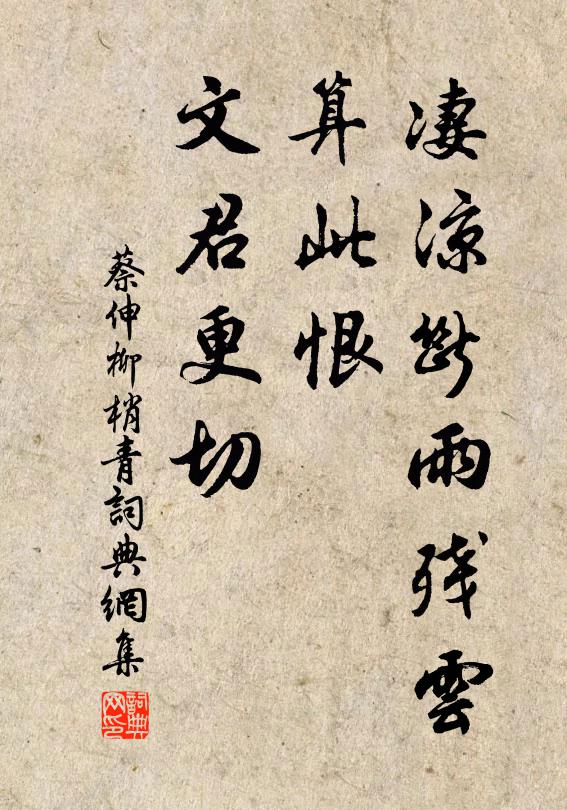 凄涼斷雨殘雲
算此恨
文君更切
蔡伸柳梢青詞典網集
詞典
网印